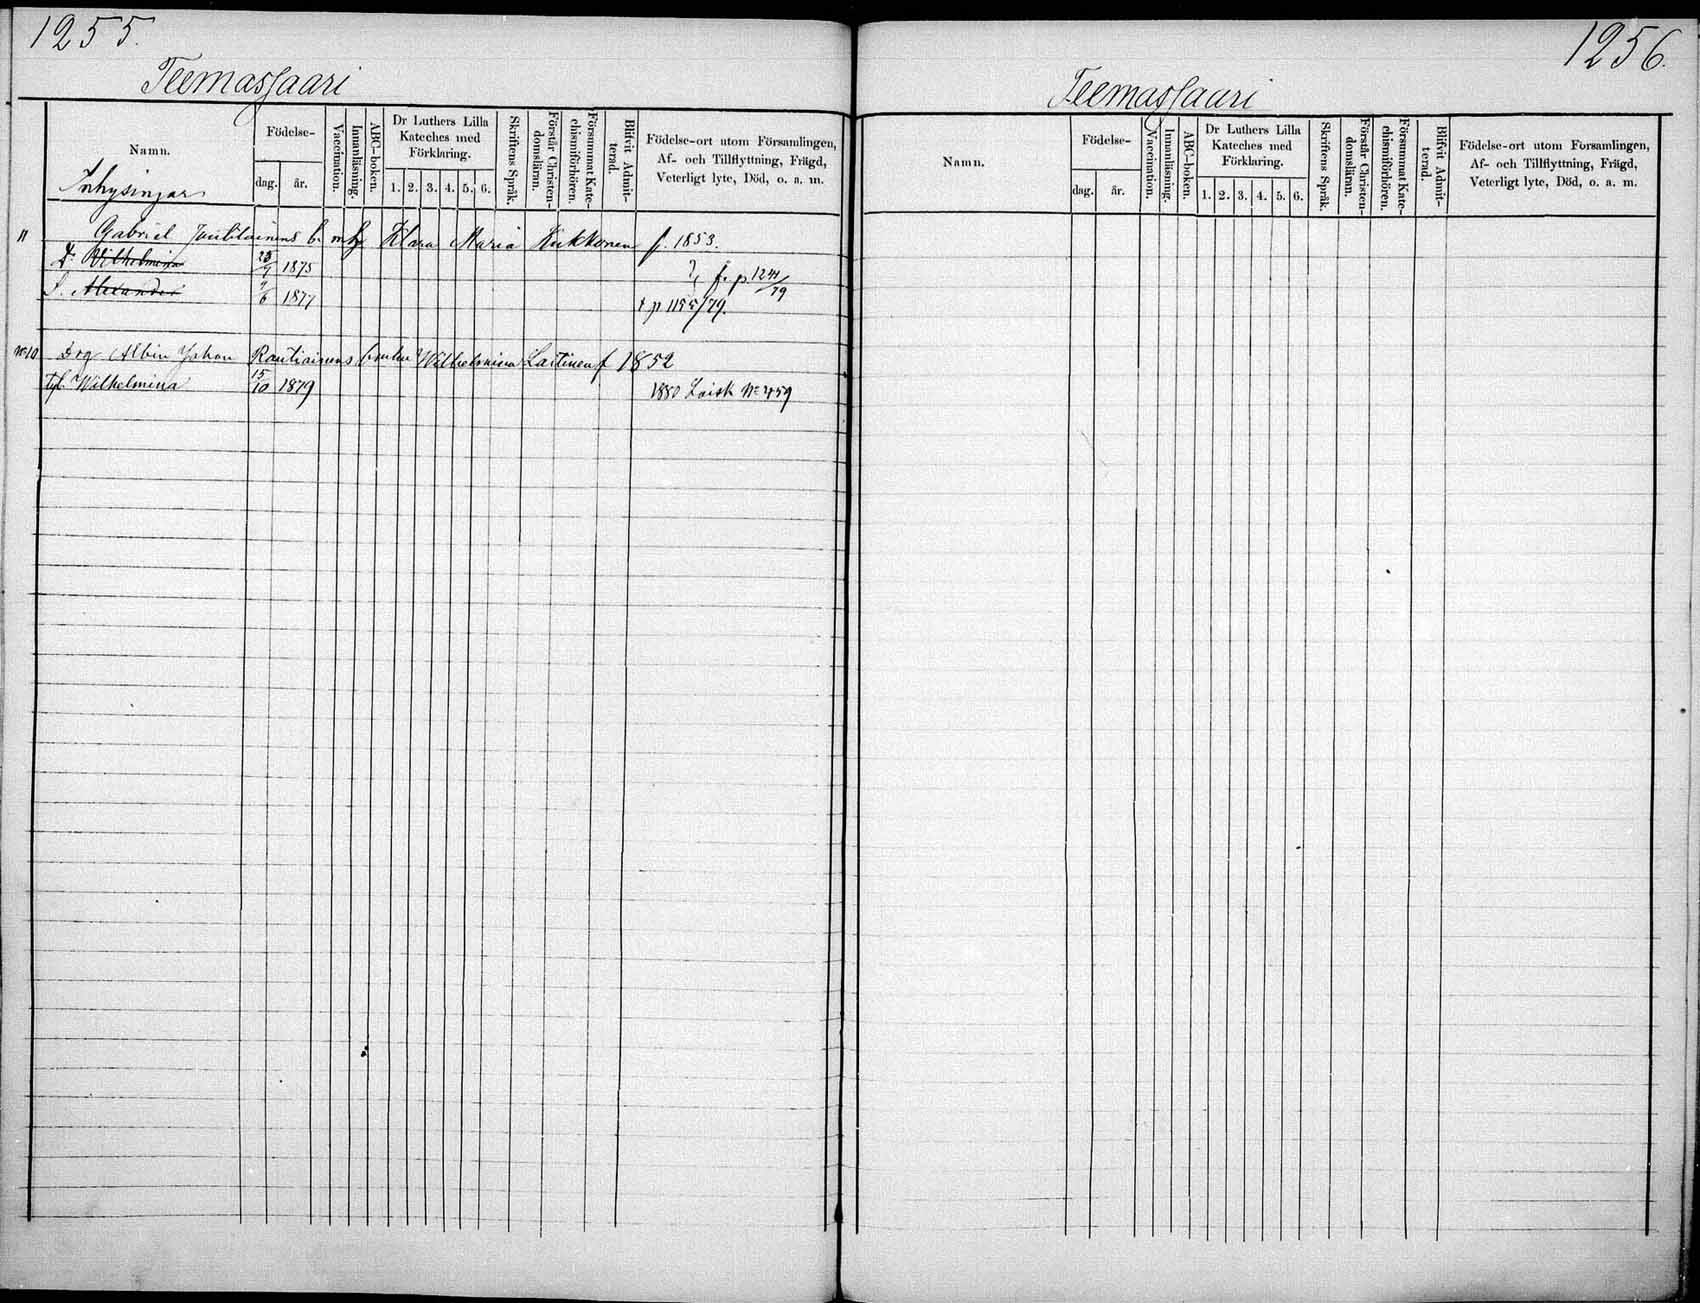 1255.
Teemassaari
Namn.
Födelse-
dag. år.
Vaccination.
Innanläsning.
ABC-boken.
Dr Luthers Lilla Kateches med Förklaring.
1. 2. 3. 4. 5. 6.
Skriftens Språk.
Förstår Christendomsläran.
Försummat Katechismiförhören.
Blifvit Admitterad.
Födelse-ort utom Församlingen,
Af- och Tillflyttning, Frägd,
Veterligt lyte, Död, o. a. m.
Inhysingar
11 Gabriel b. Klara Maria Kukkonen f. 1853.
D. Wilhelmina 1875 f. p. 1241/79
S. Alexander 9/6 1877 + p 1155/79.
No 10 Drg Albin Johan Rautiainens Wilhelmina Laitinen f 1852
Wilhelmina 15/10 1879 1880 No 459
1256.
Teemassaari
Namn.
Födelse-
dag. år.
Vaccination.
Innanläsning.
ABC-boken.
Dr Luthers Lilla Kateches med Förklaring.
1. 2. 3. 4. 5. 6.
Skriftens Språk.
Förstår Christendomsläran.
Försummat Katechismiförhören.
Blifvit Admitterad.
Födelse-ort utom Församlingen,
Af- och Tillflyttning, Frägd,
Veterligt lyte, Död, o. a. m.